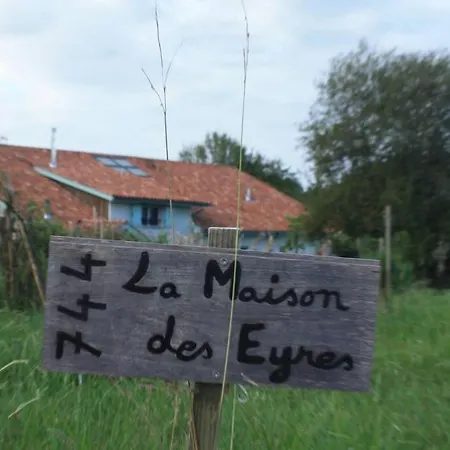 744
La Maison
des Eyres